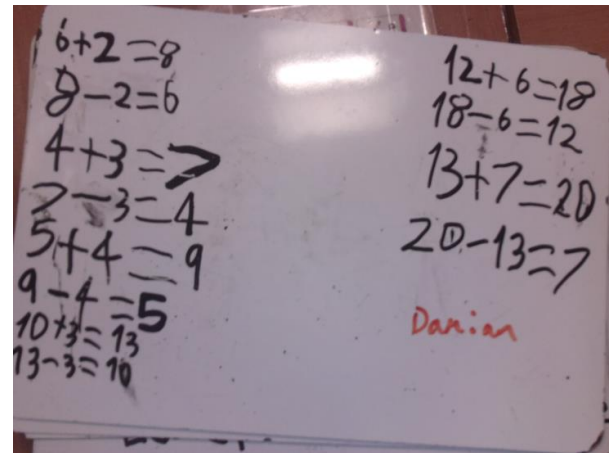 6+2=8
8-2=6
4+3=7
7-3=4
5+4=9
9-4=5
10+3=13
13-3=10
12+6=18
18-6=12
13+7=20
20-13=7
Damian